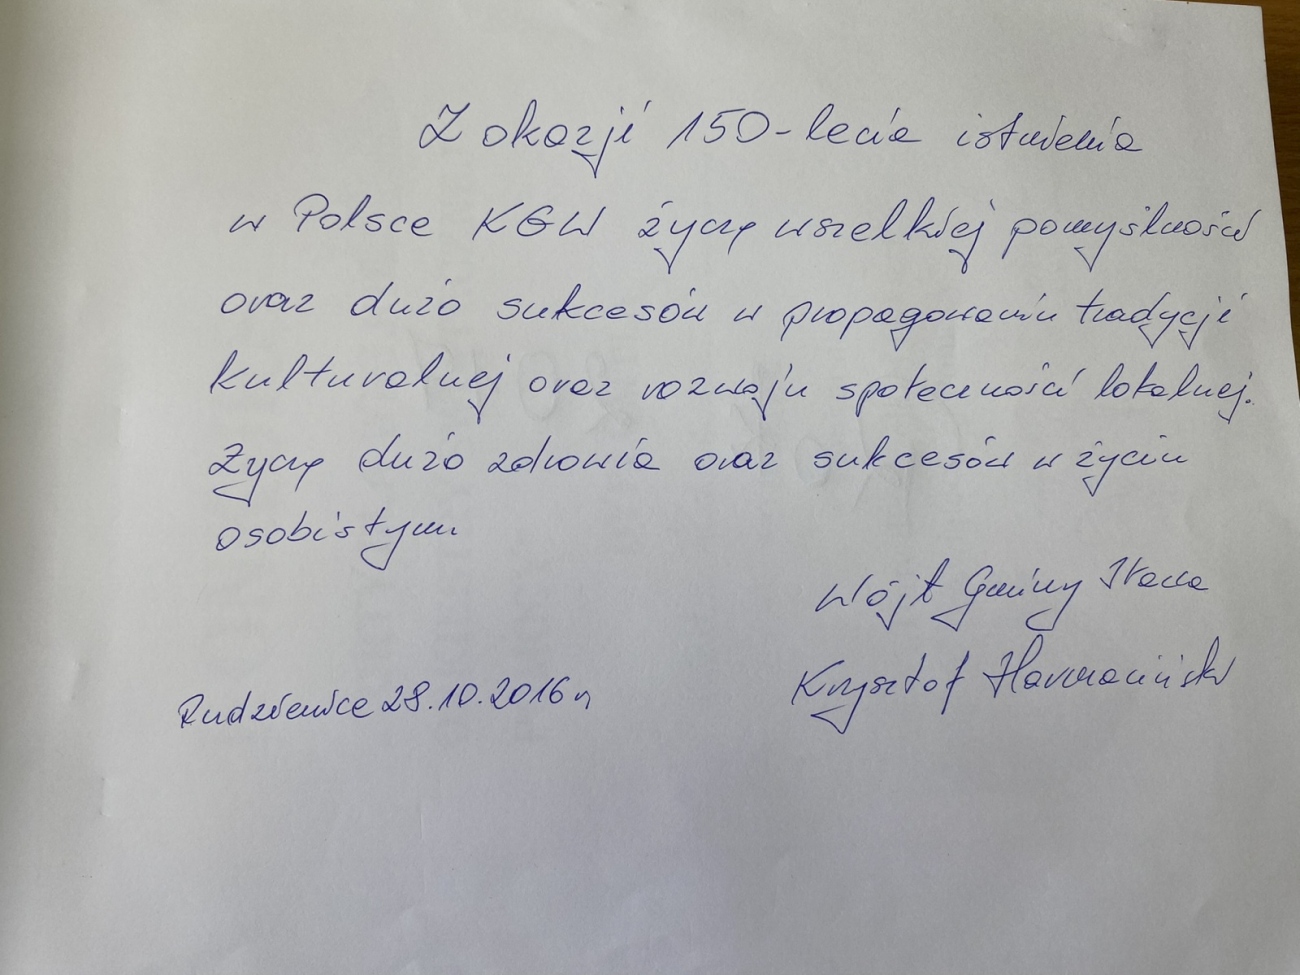 Z okazji 150-lecia istnienia
w Polsce KGW życzę wszelkiej pomyślności
oraz dużo sukcesów w propagowaniu tradycji
kulturalnej oraz rozwoju społeczności lokalnej.
Życzę dużo zdrowia oraz sukcesów w życiu
osobistym.
Wójt Gminy Iława
Krzysztof Harmaciński
Rudzienice 28.10.2016 r